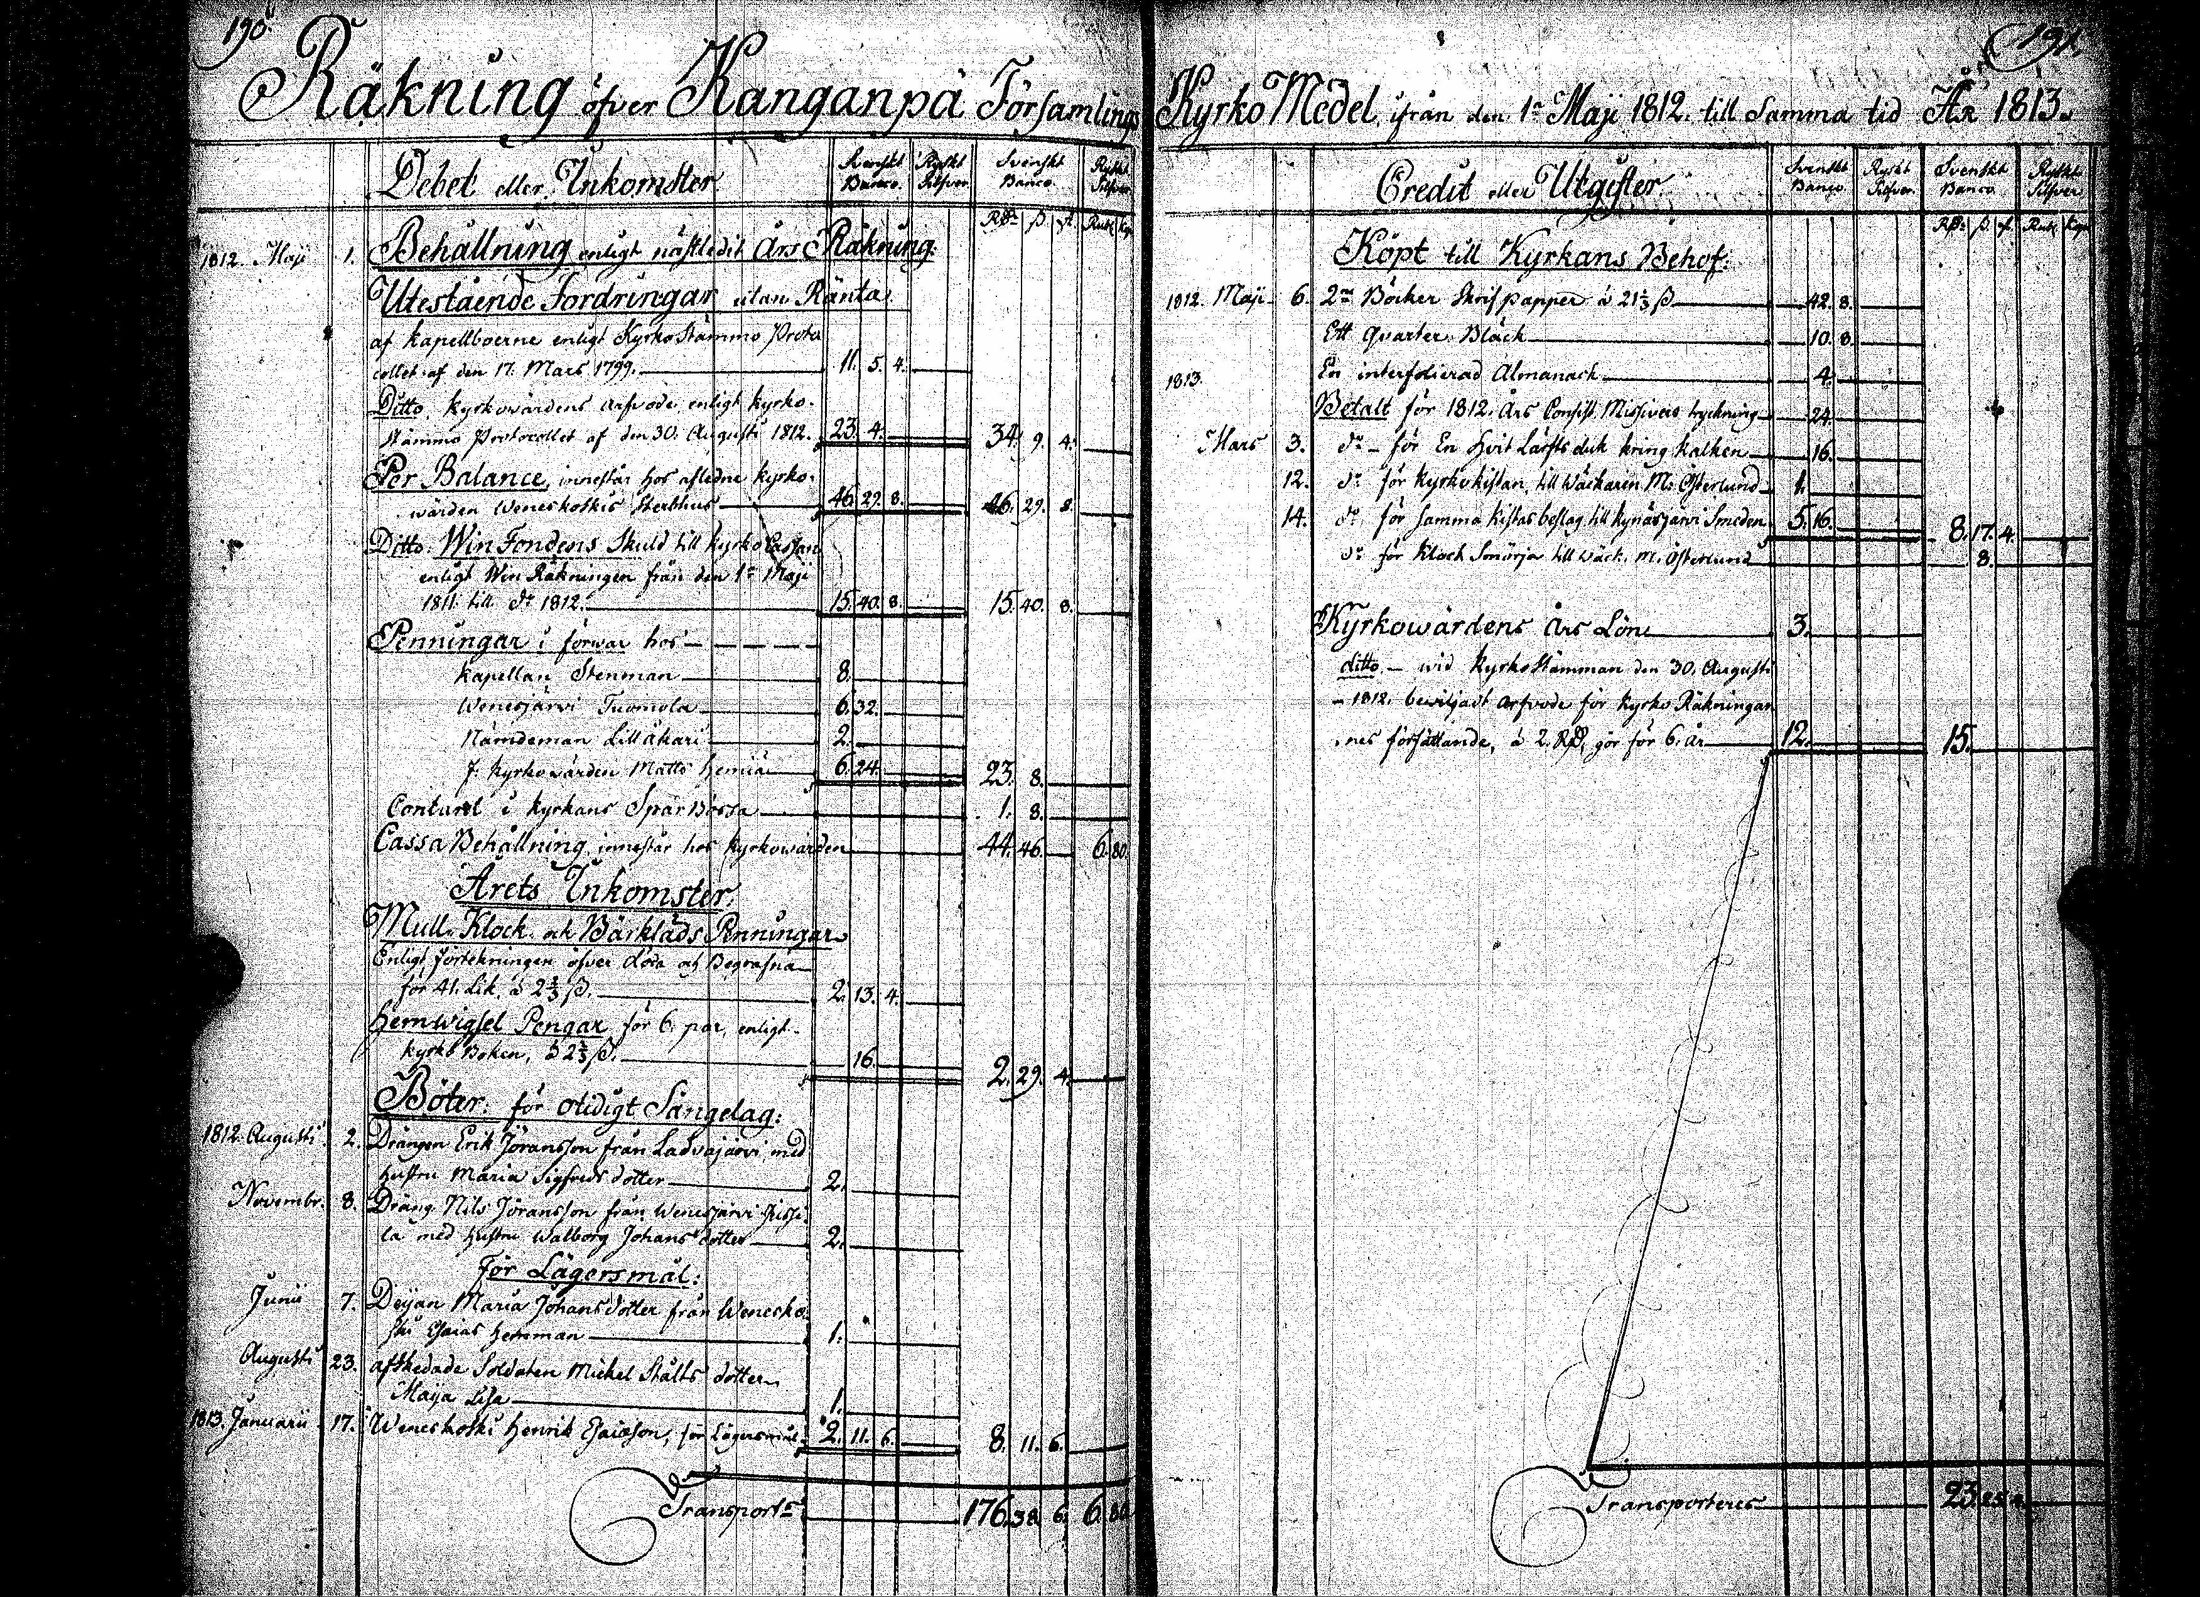 190.
Räkning öfver Kanganpä Församlings
Debet eller Inkomster
Svenskt Banco. Ryskt Silfver. Svenskt Banco. Ryskt Silfver
Rdr ß rst. Rub. Kop.
1812. Maji 1. Behållning enligt nästledit Års Räkning.
Utestående Fordringar utan Ränta.
af Kapellboerne enligt KyrkoStämmo Proto
collet af den 17. Mars 1799. 11. 5. 4.
Ditto, Kyrkowärdens arfvode enligt Kyrko-
stämmo Protocollet af den 30. Augusti 1812. 23. 4. 34. 9. 4.
Per Balance, innestår hos afledne Kyrko-
wärden Weneskoskis Sterbhus 46. 29. 8. 46. 29. 8.
Ditto. WinFondens Skuld till KyrkoCassan
enligt Win Räkningen från den 1a Maji
1811. till do 1812. 15. 40. 8. 15. 40. 8.
Penningar i förwar hos
Kapellan Stenman 8.
Wenesjärvi Tuomola 6. 32.
Nämdeman Lilläkari 2.
f. Kyrkowärden Matts Hemiä 6. 24. 23. 8.
Contant i Kyrkans SparBössa 1. 8.
Cassa Behållning, innestår hos Kyrkowärden 44. 46. 6. 80.
Årets Inkomster.
Mull- Klock- och Bårkläds Penningar
Enligt förtekningen öfver döda och Begrafna
för 41. Lik, à 2 2/3 ß. 2. 13. 4.
Hemwigsel Pengar för 6. par, enligt
Kyrko Boken, à 2 2/3 ß. 16. 2. 29. 4.
Böter: för otidigt Sängelag:
1812. Augusti 2. Drängen Erik Jöransson från Ladvajärvi med
hustru Maria Sigfreds dotter 2.
Novembr. 8. Dräng Nils Jöransson från Wenesjärvi
la med hustru Walborg Johans dotter 2.
För Lägersmål:
Junii 7. Deijan Maria Johans dotter från Wenesko-
ski Esaias hemman 1.
Augusti 23. afskedade Soldaten Michel Stålts dotter
Maija Lisa 1.
1813. Januarii 17. Weneskoski Henrik Esaiason, för Lägersmål 2. 11. 6. 8. 11. 6.
Transport 176. 38. 6. 6. 80.
191.
Kyrko Medel, ifrån den 1a Maji 1812. till Samma tid År 1813.
Credit eller Utgifter.
Svenskt Banco. Ryskt Silfver. Svenskt Banco. Ryskt Silfver
Rdr ß rst. Rub. Kop.
Köpt till Kyrkans Behof:
1812. Maji 6. 2ne Böcker Skrifpapper à 21 1/3 ß 42. 8.
Ett Quarter Bläck 10. 8.
1813. En interfolierad Almanack 4.
Betalt för 1812. Års Consist. Missivers tryckning 24.
Mars 3. do för En Hvit Lärfts duk kring Kalken 16.
12. do för Kyrkokistan, till Wäckarin M. Österlund 1.
14. do för samma Kistas beslag till Kynäsjärvi Smeden 5. 16. 8. 17. 4.
do för Klock Smörja till Wäck. M. Österlund 8.
Kyrkowärdens Års Lön 3.
ditto wid KyrkoStämman den 30. Augusti
1812. beviljadt arfvode för Kyrko Räkningar
nes författande, à 2. Rdr, gör för 6. år 12. 15.
Transporteres 23. 25. 4.